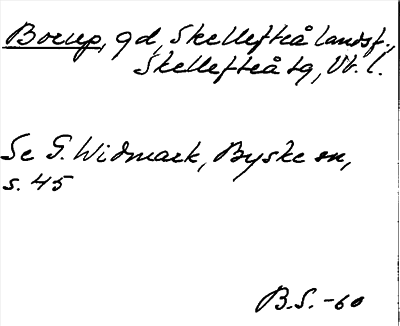 Borup, gd, Skellefteå landsf.,
Skellefteå tg, Vb. l.
Se G. Widmark, Byske sn,
s. 45
B.S. -60